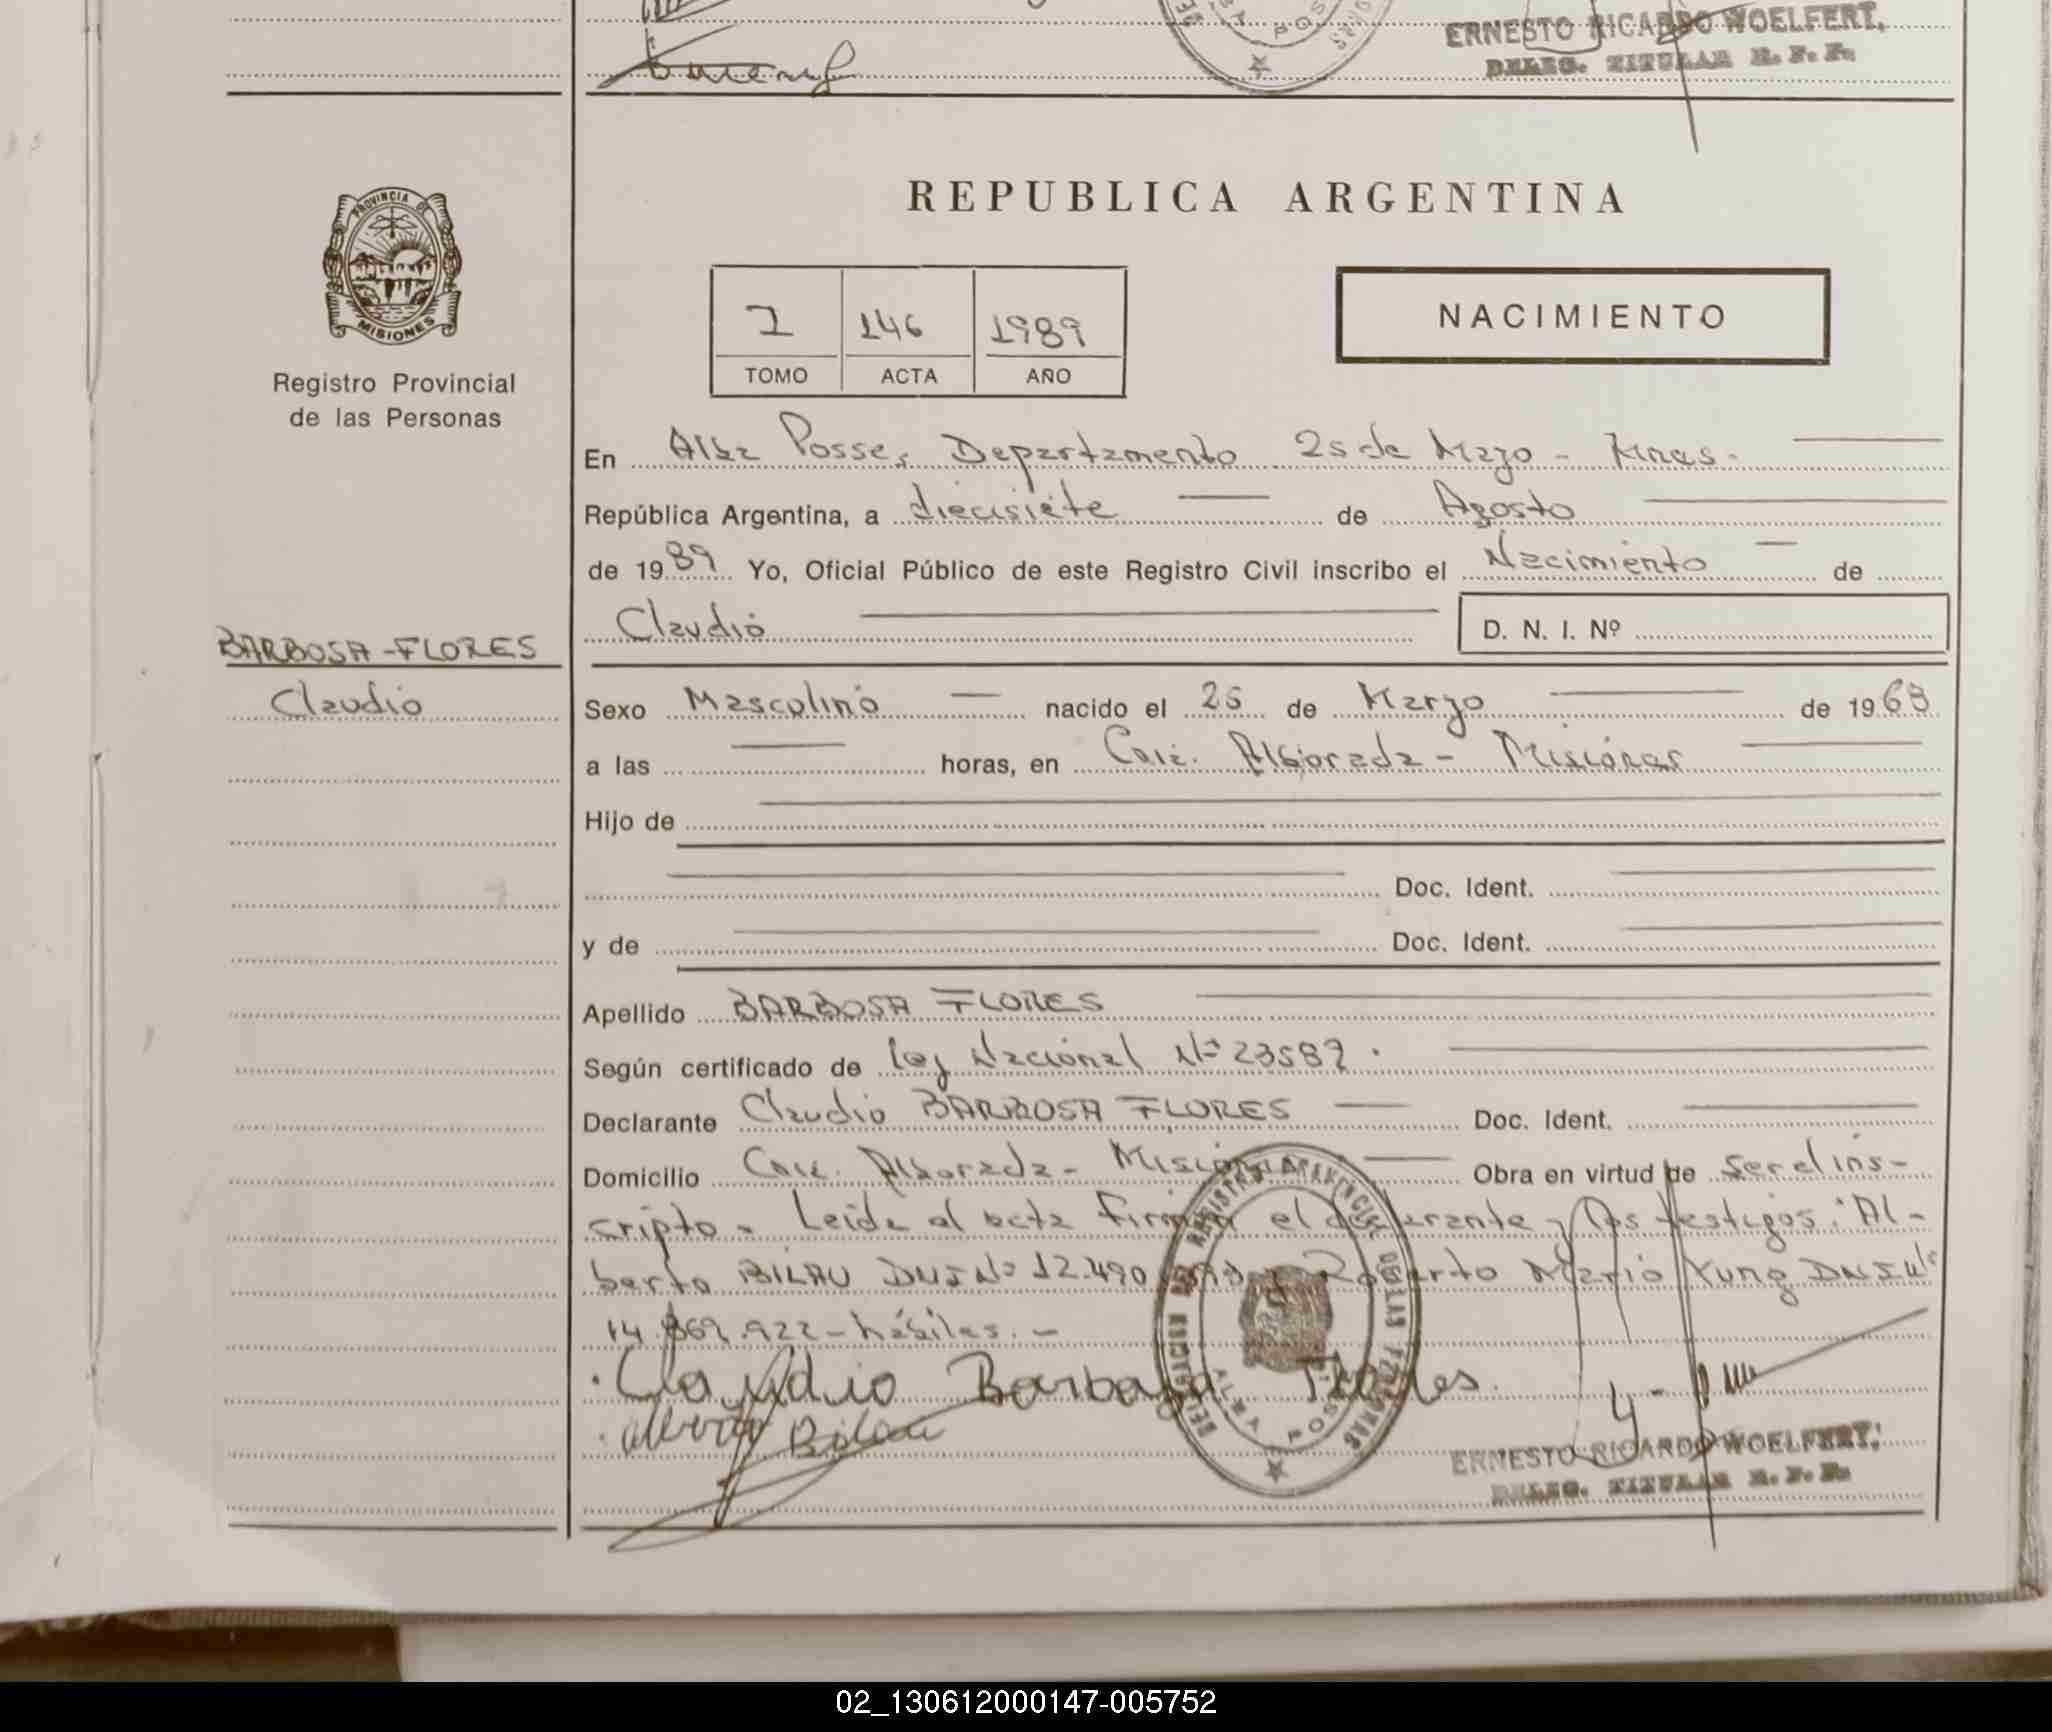 ERNESTO RICARDO WOELFERT,
DELEG. TITULAR R. P. P.
PROVINCIA DE
MISIONES
Registro Provincial
de las Personas
REPUBLICA ARGENTINA
1 146 1989
TOMO ACTA AÑO
NACIMIENTO
En Alba Posse, Departamento 25 de Mayo - Mnes.
República Argentina, a diecisiete de Agosto
de 1989 Yo, Oficial Público de este Registro Civil inscribo el Nacimiento de
Claudio D. N. I. Nº
BARBOSA-FLORES
Claudio
Sexo Masculino nacido el 25 de Marzo de 1963
a las horas, en Alborada - Misiones
Hijo de
Doc. Ident.
y de Doc. Ident.
Apellido BARBOSA FLORES
Según certificado de Ley Nacional Nº 23582.
Declarante Claudio BARBOSA FLORES Doc. Ident.
Domicilio Alborada - Misiones Obra en virtud de ser el ins-
cripto. Leida el acta firman el declarante y los testigos: Al-
berto BILAU DNI Nº 12.490 y Roberto Mario Kung DNI Nº
14.869.922 - hábiles. -
Claudio Barboza Flores.
Bilau
DELEGACION DEL REGISTRO PROVINCIAL DE LAS PERSONAS
ALBA POSSE
ERNESTO RICARDO WOELFERT,
DELEG. TITULAR R. P. P.
02_130612000147-005752